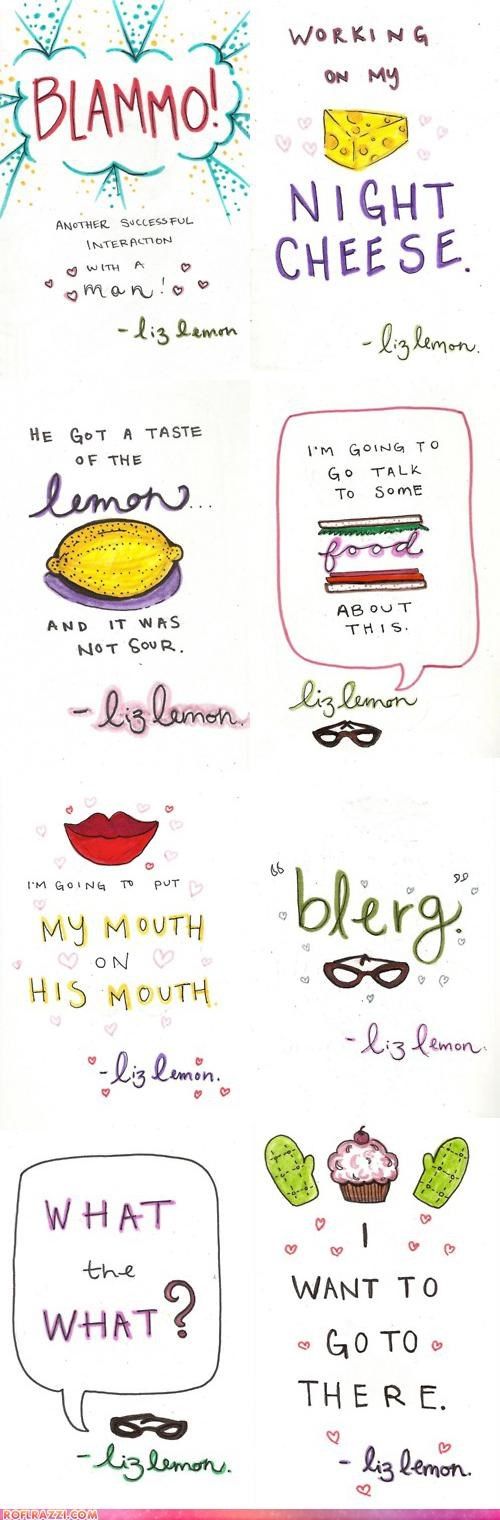 BLAMMO!
ANOTHER SUCCESSFUL
INTERACTION
WITH A
man!
- liz lemon
WORKING
ON MY
NIGHT
CHEESE.
- liz lemon.
HE GOT A TASTE
OF THE
lemon...
AND IT WAS
NOT SOUR.
- liz lemon.
I'M GOING TO
GO TALK
TO SOME
food
ABOUT
THIS.
liz lemon
I'M GOING TO PUT
MY MOUTH
ON
HIS MOUTH.
- liz lemon.
"blerg."
- liz lemon.
WHAT
the
WHAT?
- liz lemon.
I
WANT TO
GO TO
THERE.
- liz lemon.
ROFLRAZZI.COM